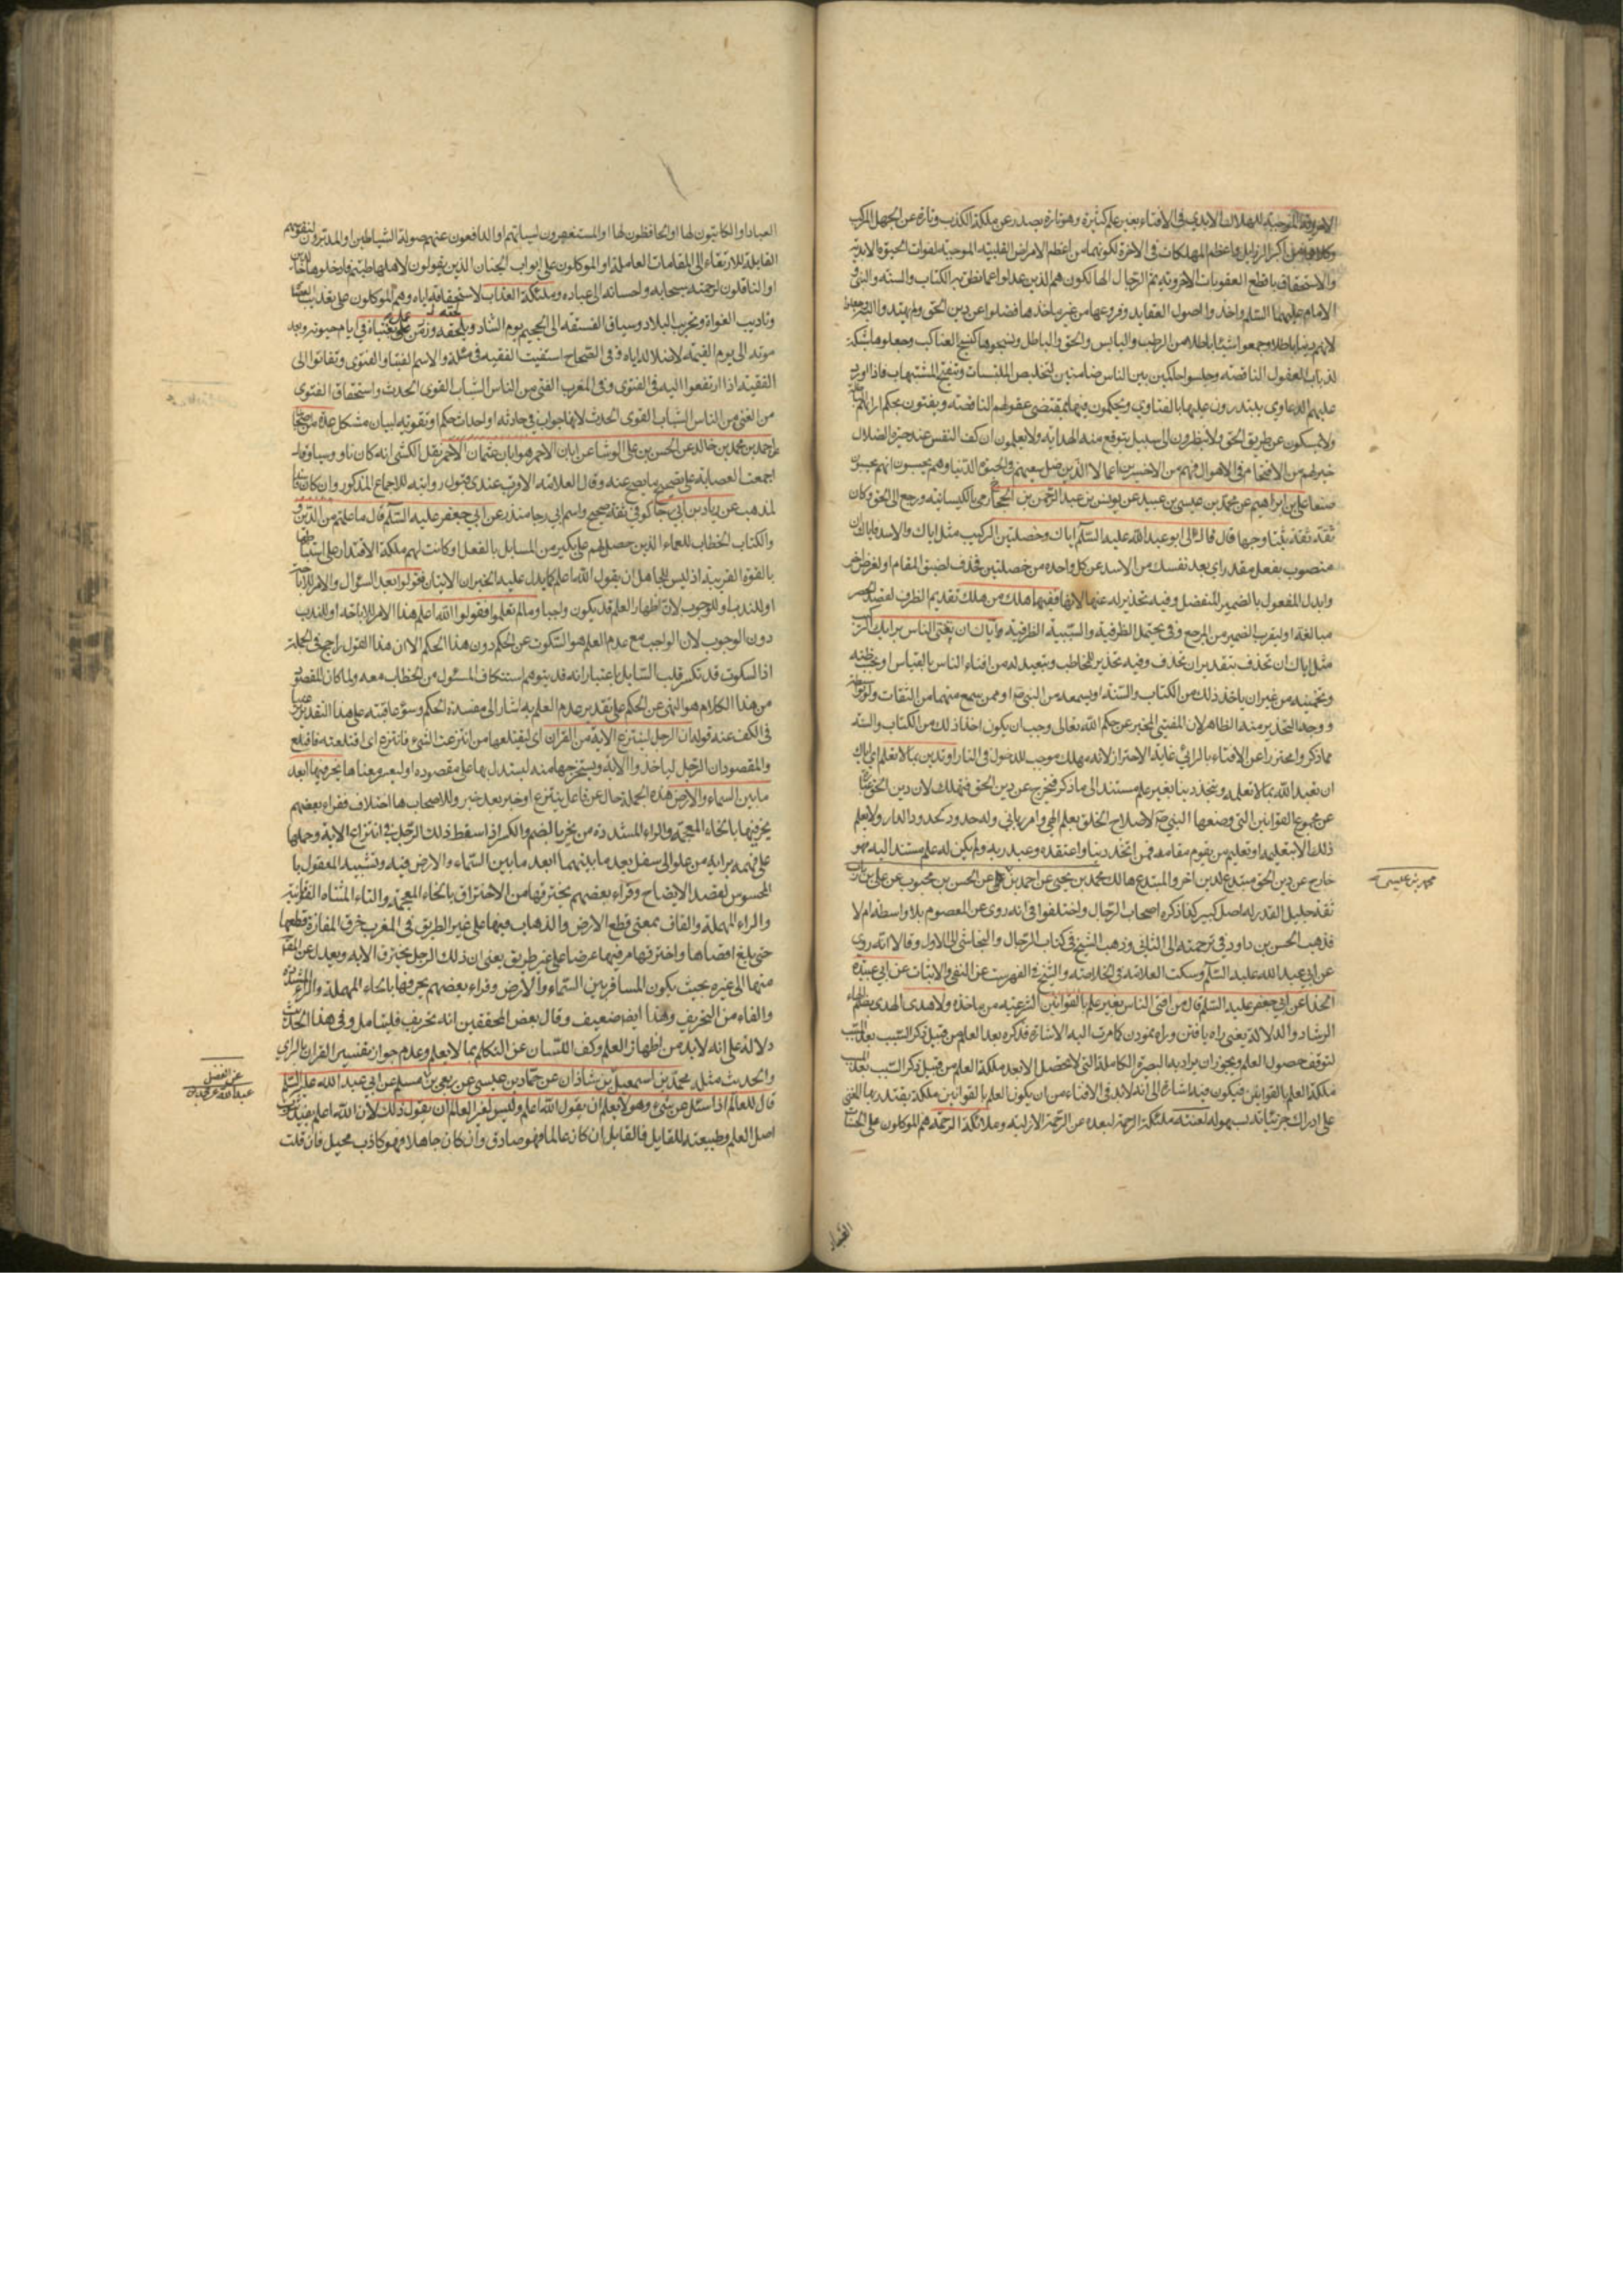 الاخروية الموجبة للهلاك الابدي في الافتاء بغير علم كثيرة وهو تارة يصدر عن ملكة الكذب وتارة عن الجهل المركب
وكلاهما من اكبر الرذايل واعظم المهلكات في الاخرة لكونهما من اعظم الامراض القلبية الموجبة لفوات الحيوة الابدية
والاستحقاق باقطع العقوبات الاخروية ثم الرجال الهالكون هم الذين عدلوا عما نطق به الكتاب والسنة والنبي و
الامام عليهما السلم واخذوا اصول العقايد وفروعها من غير ماخذها فضلوا عن دين الحق ولم يهتدوا اليه
لانهم دينا باطلا وجمعوا شيئا باطلا من الرطب واليابس والحق والباطل ونسجوها كنسج العناكب وجعلوها شبكة
لذباب العقول الناقصة وجلسوا حاكمين بين الناس ضامنين لتخليص الملتبسات وتنقيح المشتبهات فاذا ورد
عليهم الدعاوي يبتدرون عليها بالفتاوي ويحكمون فيها بمقتضى عقولهم الناقصة ويفتون بحكم ارائهم
ولا يمسكون عن طريق الحق ولا ينظرون الى سبيل يتوقع منه الهداية ولا يعلمون ان كف النفس عند حيرة الضلال
خير لهم من الاقتحام في الاهوال فهم من الاخسرين اعمالا الذين ضل سعيهم في الحيوة الدنيا وهم يحسبون انهم يحسنون
صنعا علي بن ابراهيم عن محمد بن عيسى بن عبيد عن يونس بن عبد الرحمن بن الحجاج رمي بالكيسانية ورجع الى الحق وكان
ثقة ثقة ثبتا وجها قال قال لي ابو عبد الله عليه السلم اياك وخصلتين الركيب مثل اياك والاسد فاياك
منصوب بفعل مقدر اي بعد نفسك من الاسد عن كل واحدة من خصلتين فحذف لضيق المقام او لغرض اخر
وابدل المفعول بالضمير المنفصل وفيه تحذير له عنها لاتقا ففيهما هلك من هلك تقديم الظرف لقصد الحصر
مبالغة او لتقرب الضمير من المرجع وفي يحتمل الظرفية والسببية الظرفية واياك ان تفتي الناس برايك
مثل اياك ان تحذف بتقدير ان تحذف وفيه تحذير للمخاطب وتبعيد له من افتاء الناس بالقياس او بحسب ظنه
وتخمينه من غير ان ياخذ ذلك من الكتاب والسنة او يسمعه من النبي ص او ممن سمع منهما من الثقات ولو بواسطة
ووجه التحذير منه الظاهر لان المفتي المخبر عن حكم الله تعالى وجب ان يكون اخذا ذلك من الكتاب والسنة
مما ذكر واحترز اعن الافتاء بالراي غاية الاحتراز لانه مهلك موجب للدخول في النار او تدين بما لا تعلم اي اياك
ان تعبد الله بما لا تعلمه وتتخذ دينا بغير علم مستند الى ما ذكر فتخرج عن دين الحق فتهلك لان دين الحق عبارة
عن مجموع القوانين التي وضعها النبي ص لاصلاح الخلق بعلم الهي وامر رباني وله حدود كحدود الدار ولا يعلم
ذلك الا بتعليمه او تعليم من يقوم مقامه فمن اتخذ دينا واعتقده وعبد ربه ولم يكن له علم مستند اليه فهو
خارج عن دين الحق مبتدع لدين اخر والمبتدع هالك محمد بن يحيى عن احمد بن عن الحسن بن محبوب عن علي بن رئاب
ثقة جليل القدر له اصل كبير كذا ذكره اصحاب الرجال واختلفوا في انه روى عن المعصوم بلا واسطة ام لا
فذهب الحسن بن داود في ترجمته الى الثاني وذهب الشيخ في كتاب الرجال والنجاشي الى الاول وقالا انه روى
عن ابي عبد الله عليه السلم وسكت العلامة في الخلاصة والشيخ في الفهرست عن النفي والاثبات عن ابي عبيدة
الحذا عن ابي جعفر عليه السلم قال من افتى الناس بغير علم بالقوانين الشرعية من ماخذه ولا هدى الهدى بضم الهاء
الرشاد والدلالة يعني راه يافتن وراه نمودن كما مرت اليه الاشارة فذكره بعد العلم من قبيل ذكر السبب بعد المسبب
لتوقف حصول العلم ويجوز ان يراد بها البصيرة الكاملة التي لا تحصل الا بعد ملكة العلم من قبيل ذكر السبب بعد المسبب
ملكة العلم بالقوانين فيكون فيه اشارة الى انه لا بد في الافتاء من ان يكون العلم بالقوانين ملكة يقتدر بها المفتي
على ادراك جزئياته بسهولة لعنته ملئكة الرحمة لبعده عن الرحمة الازلية وملائكة الرحمة هم الموكلون على الجنات
محمد بن عيسى
العباد
العباد او الكاتبون لها او الحافظون لها او المستغفرون لسيئاتهم او الدافعون عنهم صولة الشياطين او المدبرون لنفوسهم
القابلة للارتقاء الى المقامات العاملة او الموكلون على ابواب الجنان الذين يقولون لاهلها طبتم فادخلوها خالدين
او الناقلون لرحمته سبحانه واحسانه الى عباده وملئكة العذاب لاستحقاقه اياه وهم الموكلون على تعذيب العصاة
وتاديب الغواة وتخريب البلاد وسياق الفسقة الى الجحيم يوم التناد ويلحقه وزر من عمل بفتياه في ايام حيوته وبعد
موته الى يوم القيمة لاضلاله اياه ق في الصحاح استفتيت الفقيه في مسئلة والاسم الفتيا والفتوى وتفاتوا الى
الفقيه اذا ارتفعوا اليه في الفتوى وفي المغرب الفتي من الناس الشاب القوي الحدث واستحقاق الفتوى
من الفتي من الناس الشباب القوي الحدث لانها جواب في حادثه او احداث حكم او تقويه لبيان مشكل عدة من اصحابنا
عن احمد بن محمد بن خالد عن الحسن بن علي الوشا عن ابان الاحمر هو ابان بن عثمان الاحمر نقل الكشي انه كان ناووسيا وقال
اجمعت العصابة على تصحيح ما يصح عنه وقال العلامة الاقرب عندي قبول روايته للاجماع المذكور وان كان فاسد
المذهب عن زياد بن ابي رجا كوفي ثقة صحيح واسم ابي رجا منذر عن ابي جعفر عليه السلم قال ما علمتم من الدين و
والكتاب الخطاب للعلماء الذين حصل لهم علم بكثير من المسايل بالفعل وكانت لهم ملكة الاقتدار على استنباطها
بالقوة القريبة اذ ليس للجاهل ان يقول الله اعلم كما يدل عليه الخبران الاتيان فقولوا بعد السؤال والامر للاباحة
او للندب او للوجوب لان اظهار العلم قد يكون واجبا وما لم تعلموا فقولوا الله اعلم هذا الامر للاباحة او للندب
دون الوجوب لان الواجب مع عدم العلم هو السكوت عن الحكم دون هذا الحكم الا ان هذا القول راجح في الجملة
اذ السكوت قد نكسر قلب السايل باعتبار انه قد يتوهم استنكاف المسئول من الخطاب معه ولما كان المقصود
من هذا الكلام هو النهي عن الحكم على تقدير عدم العلم به اشار الى مفسدة الحكم وسؤ عاقبته على هذا التقدير
في الكف عنه قوله ان الرجل لينتزع الاية من القران اي ليقتلعها من انتزعت الشئ فانتزع اي اقتلعته فاقتلع
والمقصود ان الرجل لياخذ والاية ويستخرجها منه ليستدل بها على مقصوده او ليعبر معناها يحرفها ابعد
ما بين السماء والارض هذه الجملة حال عن فاعل ينتزع او خبر بعد خبر وللاصحاب ها اختلاف فقراء بعضهم
يخر فيها بالخاء المعجمة والراء المشددة من يخر بالضم والكسر اذا سقط ذلك الرجل في انتزاع الاية وحملها
على فهمه برايه من علو الى سفل بعد ما بينهما ابعد ما بين السماء والارض ففيه وتشبيه المعقول با
المحسوس لقصد الايضاح وقراء بعضهم يخترقها من الاختراق بالخاء المعجمة والتاء المثناة الفوقانية
والراء المهملة والقاف بمعنى قطع الارض والذهاب فيها على غير الطريق في المغرب خرق المفازة قطعها
حتى بلغ اقصاها واخترقها مر فيها عرضا على غير طريق يعني ان ذلك الرجل يخترق الاية ويعدل عن
منها الى غيره بحيث يكون المسافة بين السماء والارض وقراء بعضهم يحرفها بالحاء المهملة والراء المشددة
والفاء من التحريف وهذا ايضا ضعيف وقال بعض المحققين انه تحريف فليتامل وفي هذا الحديث
دلالة على انه لا بد من اظهار العلم وكف اللسان عن التكلم بما لا يعلم وعدم جواز تفسير القران بالراي
والحديث مثله محمد بن اسمعيل بن شاذان عن حماد بن عيسى عن ربعي بن مسلم عن ابي عبد الله عليه السلم
قال للعالم اذا سئل عن شئ وهو لا يعلم ان يقول الله اعلم وليس لغير العالم ان يقول ذلك لان الله اعلم يفيد ثبوت
اصل العلم وطبيعته للقايل فالقايل ان كان عالما فهو صادق وان كان جاهلا فهو كاذب محيل فان قلت
عن الفضل
عبد الله عن محمد بن